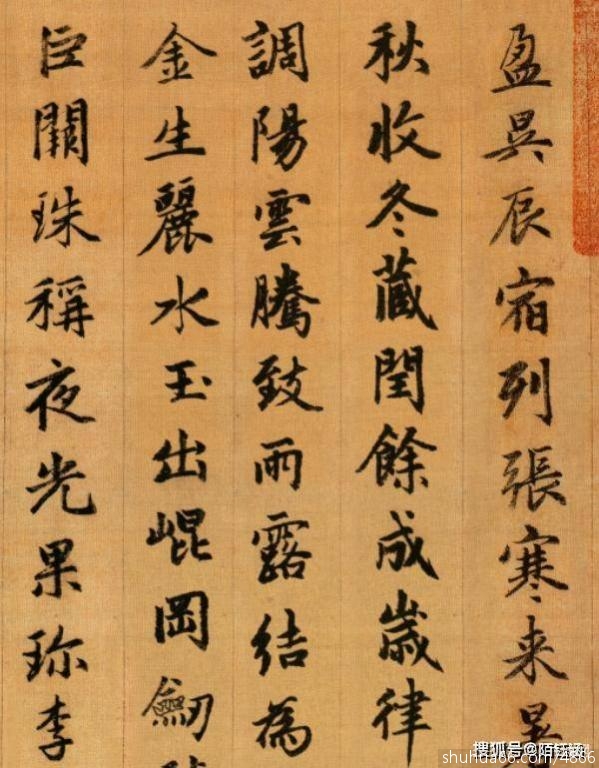 盈昃辰宿列張寒来暑
秋收冬藏閏餘成歲律
調陽雲騰致雨露結為
金生麗水玉出崐岡劒
巨闕珠稱夜光果珎李
搜狐号@陌
shuhua66.com/4866